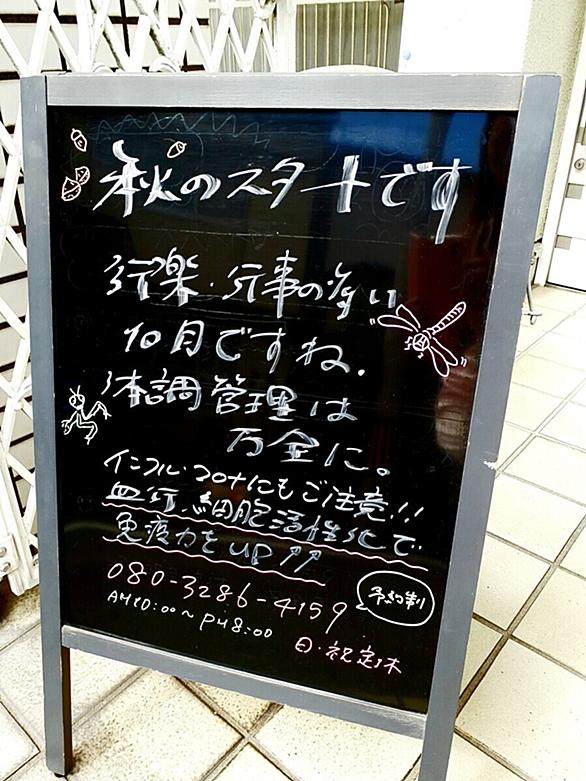 秋のスタートです
行楽・行事の多い
10月ですね.
体調管理は
万全に。
インフル・コロナにもご注意!!
血行.細胞活性化で
免疫力をUP↗↗
080-3286-4159
予約制
AM10:00~PM8:00
日・祝定休